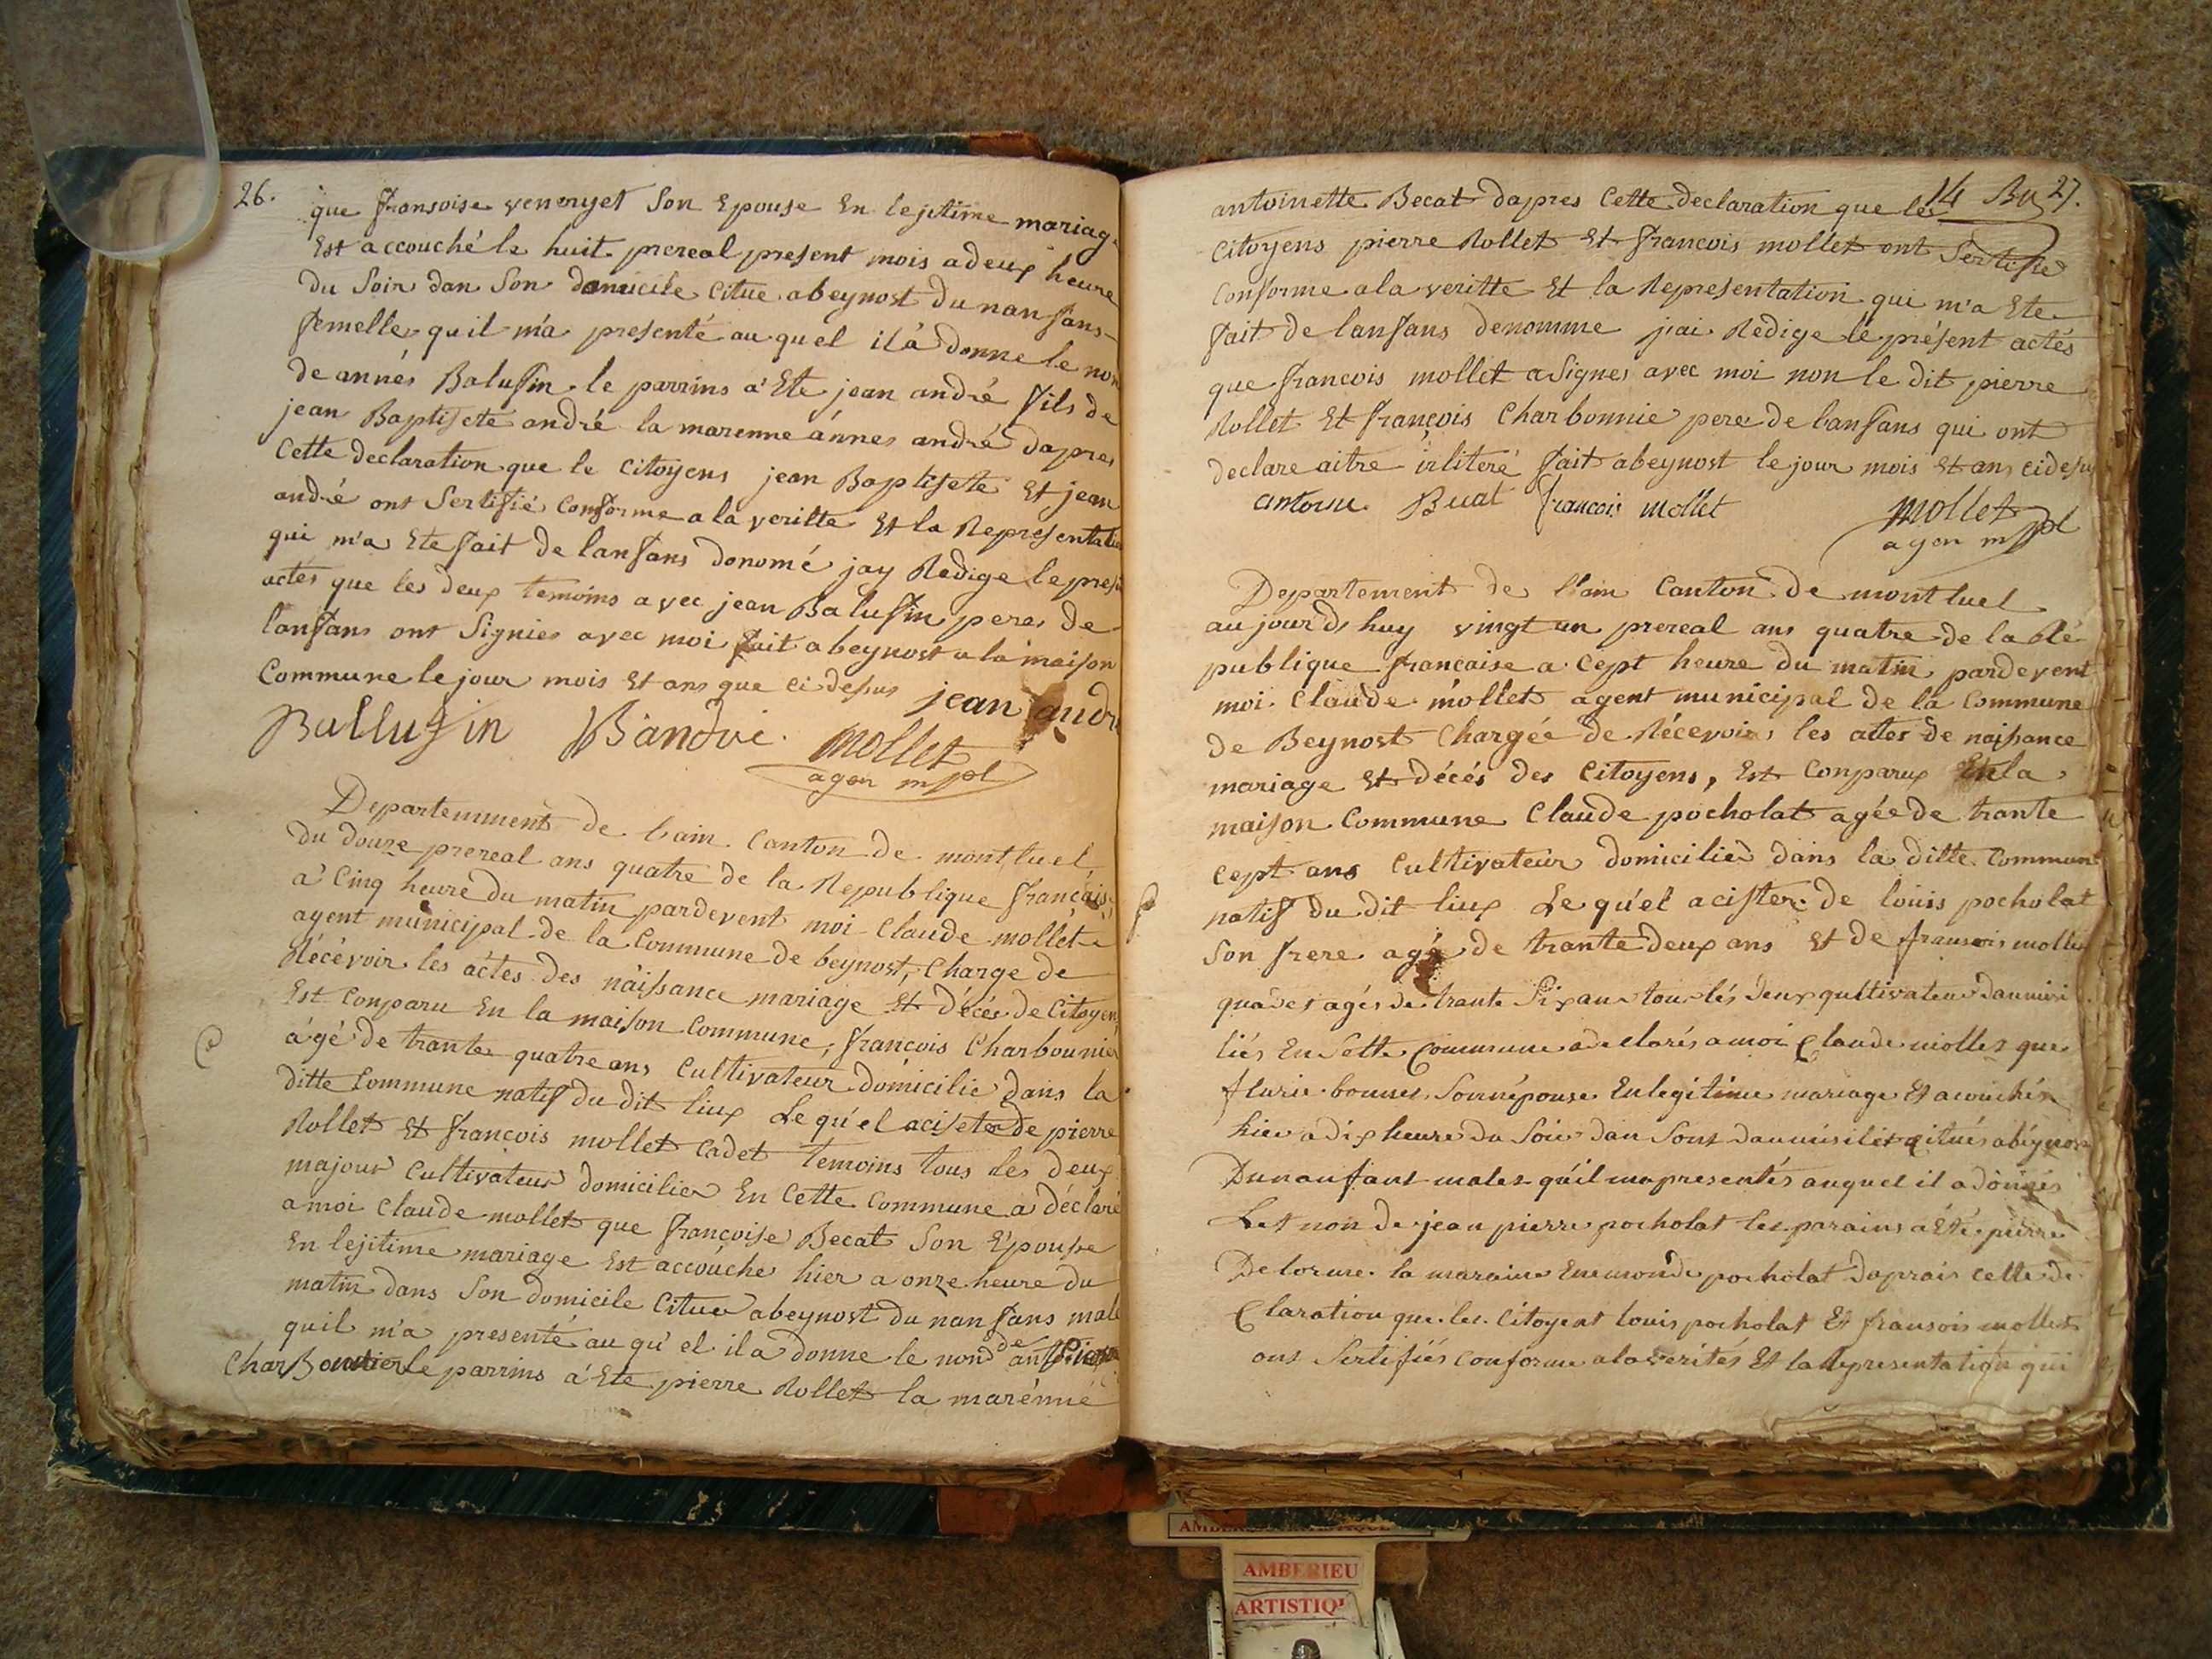 26.
que fransoise venenyet Son Epouse En lejitime mariage
Est accouché le huit prereal present mois a deux heure
du Soir dan Son domicile Citue a beynost du nan fans
femelle quil m'a presenté au quel il à donne le non
de annés Balufin le parrins a Ete jean andré fils de
jean Baptisete andré la marenne annes andré dapres
Cette declaration que le Citoyens jean Baptisete Et jean
andré ont Sertifié Conforme a la veritte Et la Representation
qui m'a Ete fait de lanfans donomé jay Redige le present
actes que les deux temoins avec jean Balufin peres de
lanfans ont Signies avec moi fait a beynost a la maison
Commune le jour mois Et ans que ci desus jean andré
Ballufin JB andre. mollet
agen mpl
Departemment de lain Canton de montluel
du douze prereal ans quatre de la Republique francaise
a Cinq heure du matin pardevent moi Claude mollet
agent municipal de la Commune de beynost, Charge de
Récévoir les actes des naissance mariage Et décés de Citoyens
Est Conparu En la maison Commune, francois Charbounier
agé de trante quatre ans Cultivateur domicilie dans la
ditte Commune natif du dit liux Le qu'el acisete de pierre
Rollet Et francois mollet Cadet temoins tous les deux
majour Cultivateur domicilier En Cette Commune a déclaré
a moi Claude mollet que françoise Becat Son Epouse
En lejitime mariage Est accouche hier a onze heure du
matin dans Son domicile Citue a beynost du nan fans male
quil m'a presenté au qu'el il a donne le nond de
CharBonnier le parrins a Ete pierre Rollet la marénne
14 27.
antoinette Becat dapres Cette declaration que les
Citoyens pierre Rollet Et francois mollet ont Sertifie
Conforme a la veritte Et la Representation qui m'a Ete
fait de lanfans denomme j'ai Redige le présent actés
que francois mollet a Signes avec moi non le dit pierre
Rollet Et françois Charbonnie pere de lanfans qui ont
declare aitre irliteré fait a beynost le jour mois Et ans ci desus
francois mollet mollet
agen mpl
Departement de l'ain Canton de montluel
au jour ds huy vingt un prereal ans quatre de la Ré
publique francaise a Cept heure du matin pardevent
moi Claude mollet agent municipal de la Commune
de Beynost Chargée de Récevoir les actes de naissance
mariage Et décés des Citoyens, Est Conparux En la
maison Commune Claude pocholat agée de trante
cept ans Cultivateur domicilier dans la ditte Commune
natif du dit liux Le qu'el acister de louis pocholat
Son frere agé de trante deux ans Et de fransois mollet
agés de trante Six an tou lés deux qultivateur daumisi
liés En Sette Commune a declarés a moi Claude mollet que
flurie bonnes Son népouse En legitime mariage Et acouchés
hier a dix heure du Soir dan Sont daumisilier citués a béynost
Dun anfant males quil ma presentés auquel il a donnés
Let non de jean pierre pocholat les parains a Eté pierre
Delorme la maraine Enemonde pocholat daprais cette de
Claration que les Citoyent louis pocholat Et fransois mollet
ont Sertifiés conforme a la verités Et la Representation qui
AMBERIEU
ARTISTIQ